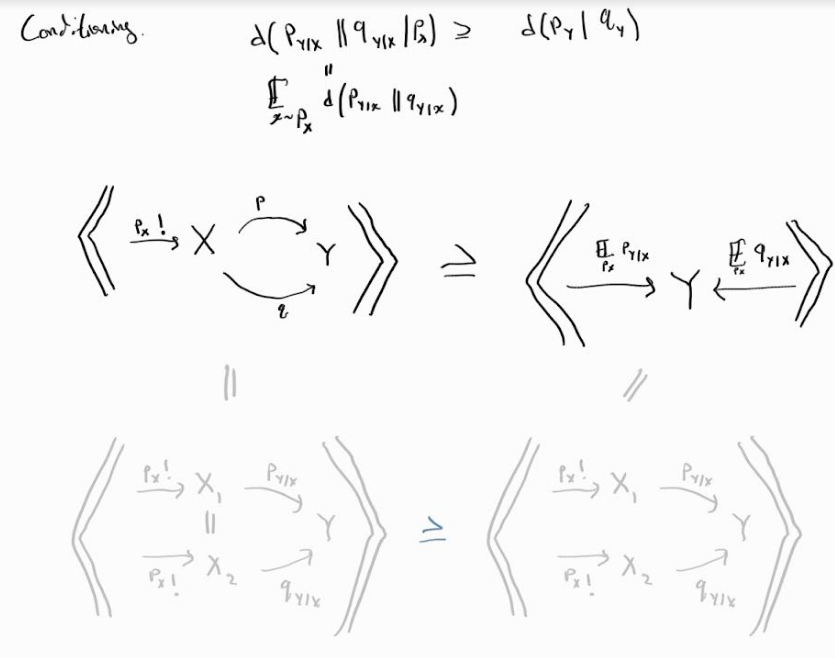 Conditioning. d(P_{Y|X} || q_{Y|X} | P_X) ≥ d(P_Y | q_Y)
||
𝔼_{x~P_X} d(P_{Y|X} || q_{Y|X})
⟪ P_X! → X P q Y ⟫ ≥ ⟪ 𝔼_{P_X} P_{Y|X} → Y ← 𝔼_{P_X} q_{Y|X} ⟫
|| //
⟪ P_X! → X_1 P_{Y|X} → Y ⟫ ≥ ⟪ P_X! → X_1 P_{Y|X} → Y ⟫
||
P_X! → X_2 q_{Y|X} P_X! → X_2 q_{Y|X}